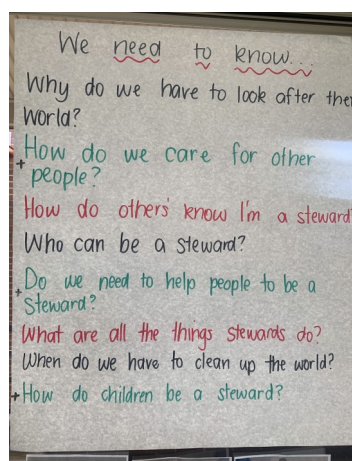 We need to know...
Why do we have to look after the
world?
+ How do we care for other
people?
How do others' know I'm a steward
Who can be a steward?
+ Do we need to help people to be a
Steward?
What are all the things stewards do?
When do we have to clean up the world?
+ How do children be a steward?